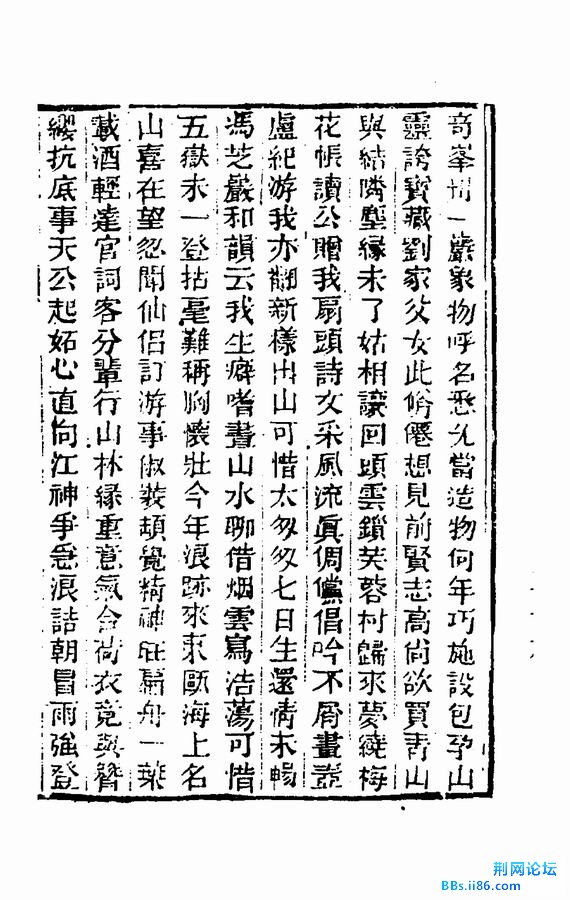 奇峯卅一巖象物呼名悉允當造物何年巧施設包孕山
靈誇寶藏劉家父女此脩僊想見前賢志高尚欲買靑山
與結隣塵緣未了姑相讓回頭雲鎖芙蓉村歸來夢繞梅
花帳讀公贈我扇頭詩文采風流眞倜儻倡吟不屑畫葫
盧紀游我亦翻新樣出山可惜太匆匆七日生還情未暢
馮芝巖和韻云我生癖嗜畫山水聊借烟雲寫浩蕩可惜
五嶽未一登拈毫難稱胸懷壯今年浪跡來東甌海上名
山喜在望忽聞仙侶訂游事俶裝頓覺精神旺扁舟一葉
載酒輕達官詞客分輩行山林緣重意氣合荷衣竟與簪
纓抗底事天公起妬心直向江神爭急浪詰朝冒雨強登
荆网论坛
BBs.ii86.com